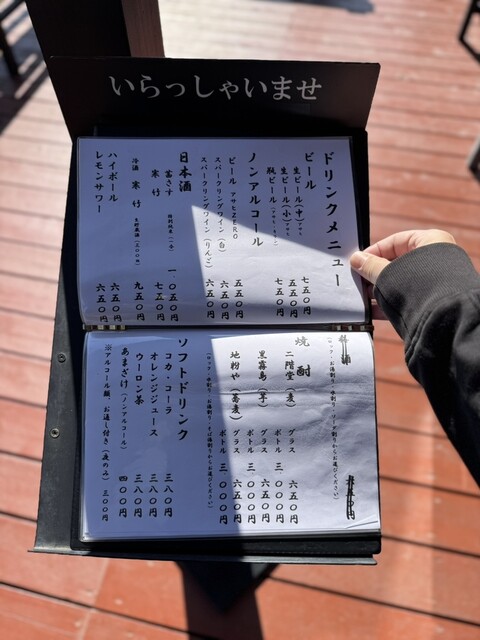 いらっしゃいませ
ドリンクメニュー
ビール
生ビール(中)アサヒ 七五〇円
生ビール(小)アサヒ 五五〇円
瓶ビール(アサヒ・キリン) 七五〇円
ノンアルコール
ビール アサヒZERO 五五〇円
スパークリングワイン(白) 六五〇円
スパークリングワイン(りんご) 六五〇円
日本酒
一、〇五〇円
寒竹 七五〇円
冷酒 寒竹 九五〇円
ハイボール 六五〇円
レモンサワー 六五〇円
焼酎
二階堂(麦) グラス 六五〇円
ボトル 三、〇〇〇円
黒霧島(芋) グラス 六五〇円
ボトル 三、〇〇〇円
地粉や(蕎麦) グラス 六五〇円
ボトル 三、〇〇〇円
ソフトドリンク
コカ・コーラ 三八〇円
オレンジジュース 三八〇円
ウーロン茶 三八〇円
あまざけ(ノンアルコール) 四〇〇円
※アルコール類、お通し付き(夜のみ) 三〇〇円